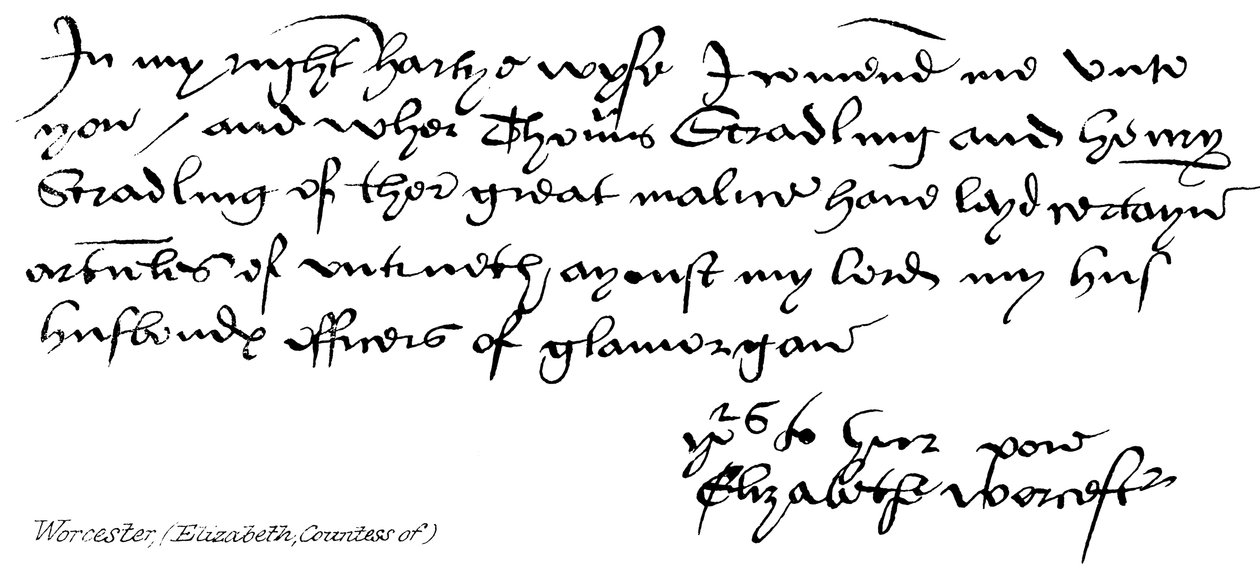 In my right hartye wyse I comend me unto
you / and wher Thomas Stradling and henry
Stradling of ther great malice have layd certayn
articles of untrueth ayenst my lord my hus
husbondes officers of glamorgan
yors to hur power
Elizabeth Worcester
Worcester, (Elizabeth, Countess of)